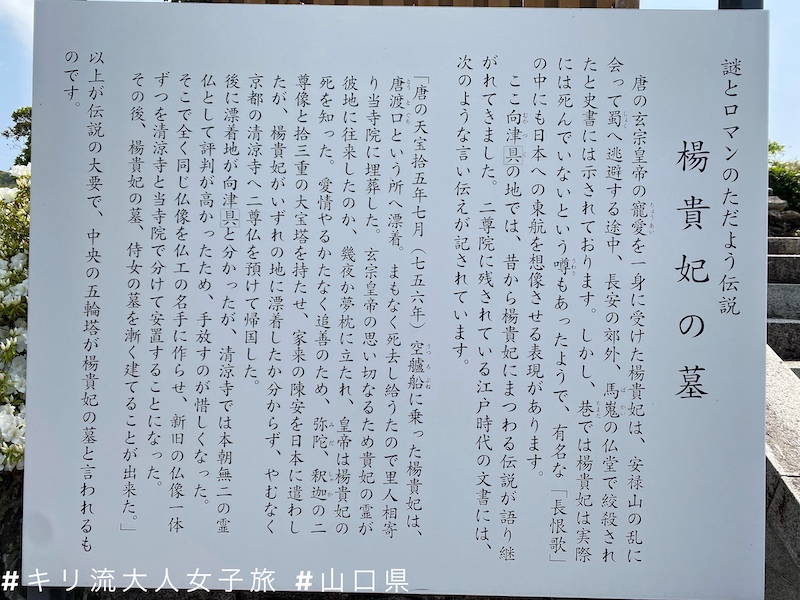 謎とロマンのただよう伝説
楊貴妃の墓
唐の玄宗皇帝の寵愛を一身に受けた楊貴妃は、安禄山の乱に
会って蜀へ逃避する途中、長安の郊外、馬嵬の仏堂で絞殺され
たと史書には示されております。しかし、巷では楊貴妃は実際
には死んでいないという噂もあったようで、有名な「長恨歌」
の中にも日本への東航を想像させる表現があります。
ここ向津具の地では、昔から楊貴妃にまつわる伝説が語り継
がれてきました。二尊院に残されている江戸時代の文書には、
次のような言い伝えが記されています。
「唐の天宝拾五年七月（七五六年）空艫船に乗った楊貴妃は、
唐渡口という所へ漂着。まもなく死去し給うたので里人相寄
り当寺院に埋葬した。玄宗皇帝の思い切なるため貴妃の霊が
彼地に往来したのか、幾夜か夢枕に立たれ、皇帝は楊貴妃の
死を知った。愛情やるかたなく追善のため、弥陀、釈迦の二
尊像と拾三重の大宝塔を持たせ、家来の陳安を日本に遣わし
たが、楊貴妃がいずれの地に漂着したか分からず、やむなく
京都の清涼寺へ二尊仏を預けて帰国した。
後に漂着地が向津具と分かったが、清涼寺では本朝無二の霊
仏として評判が高かったため、手放すのが惜しくなった。
そこで全く同じ仏像を仏工の名手に作らせ、新旧の仏像一体
ずつを清涼寺と当寺院で分けて安置することになった。
その後、楊貴妃の墓、侍女の墓を漸く建てることが出来た。」
以上が伝説の大要で、中央の五輪塔が楊貴妃の墓と言われるも
のです。
#キリ流大人女子旅 #山口県